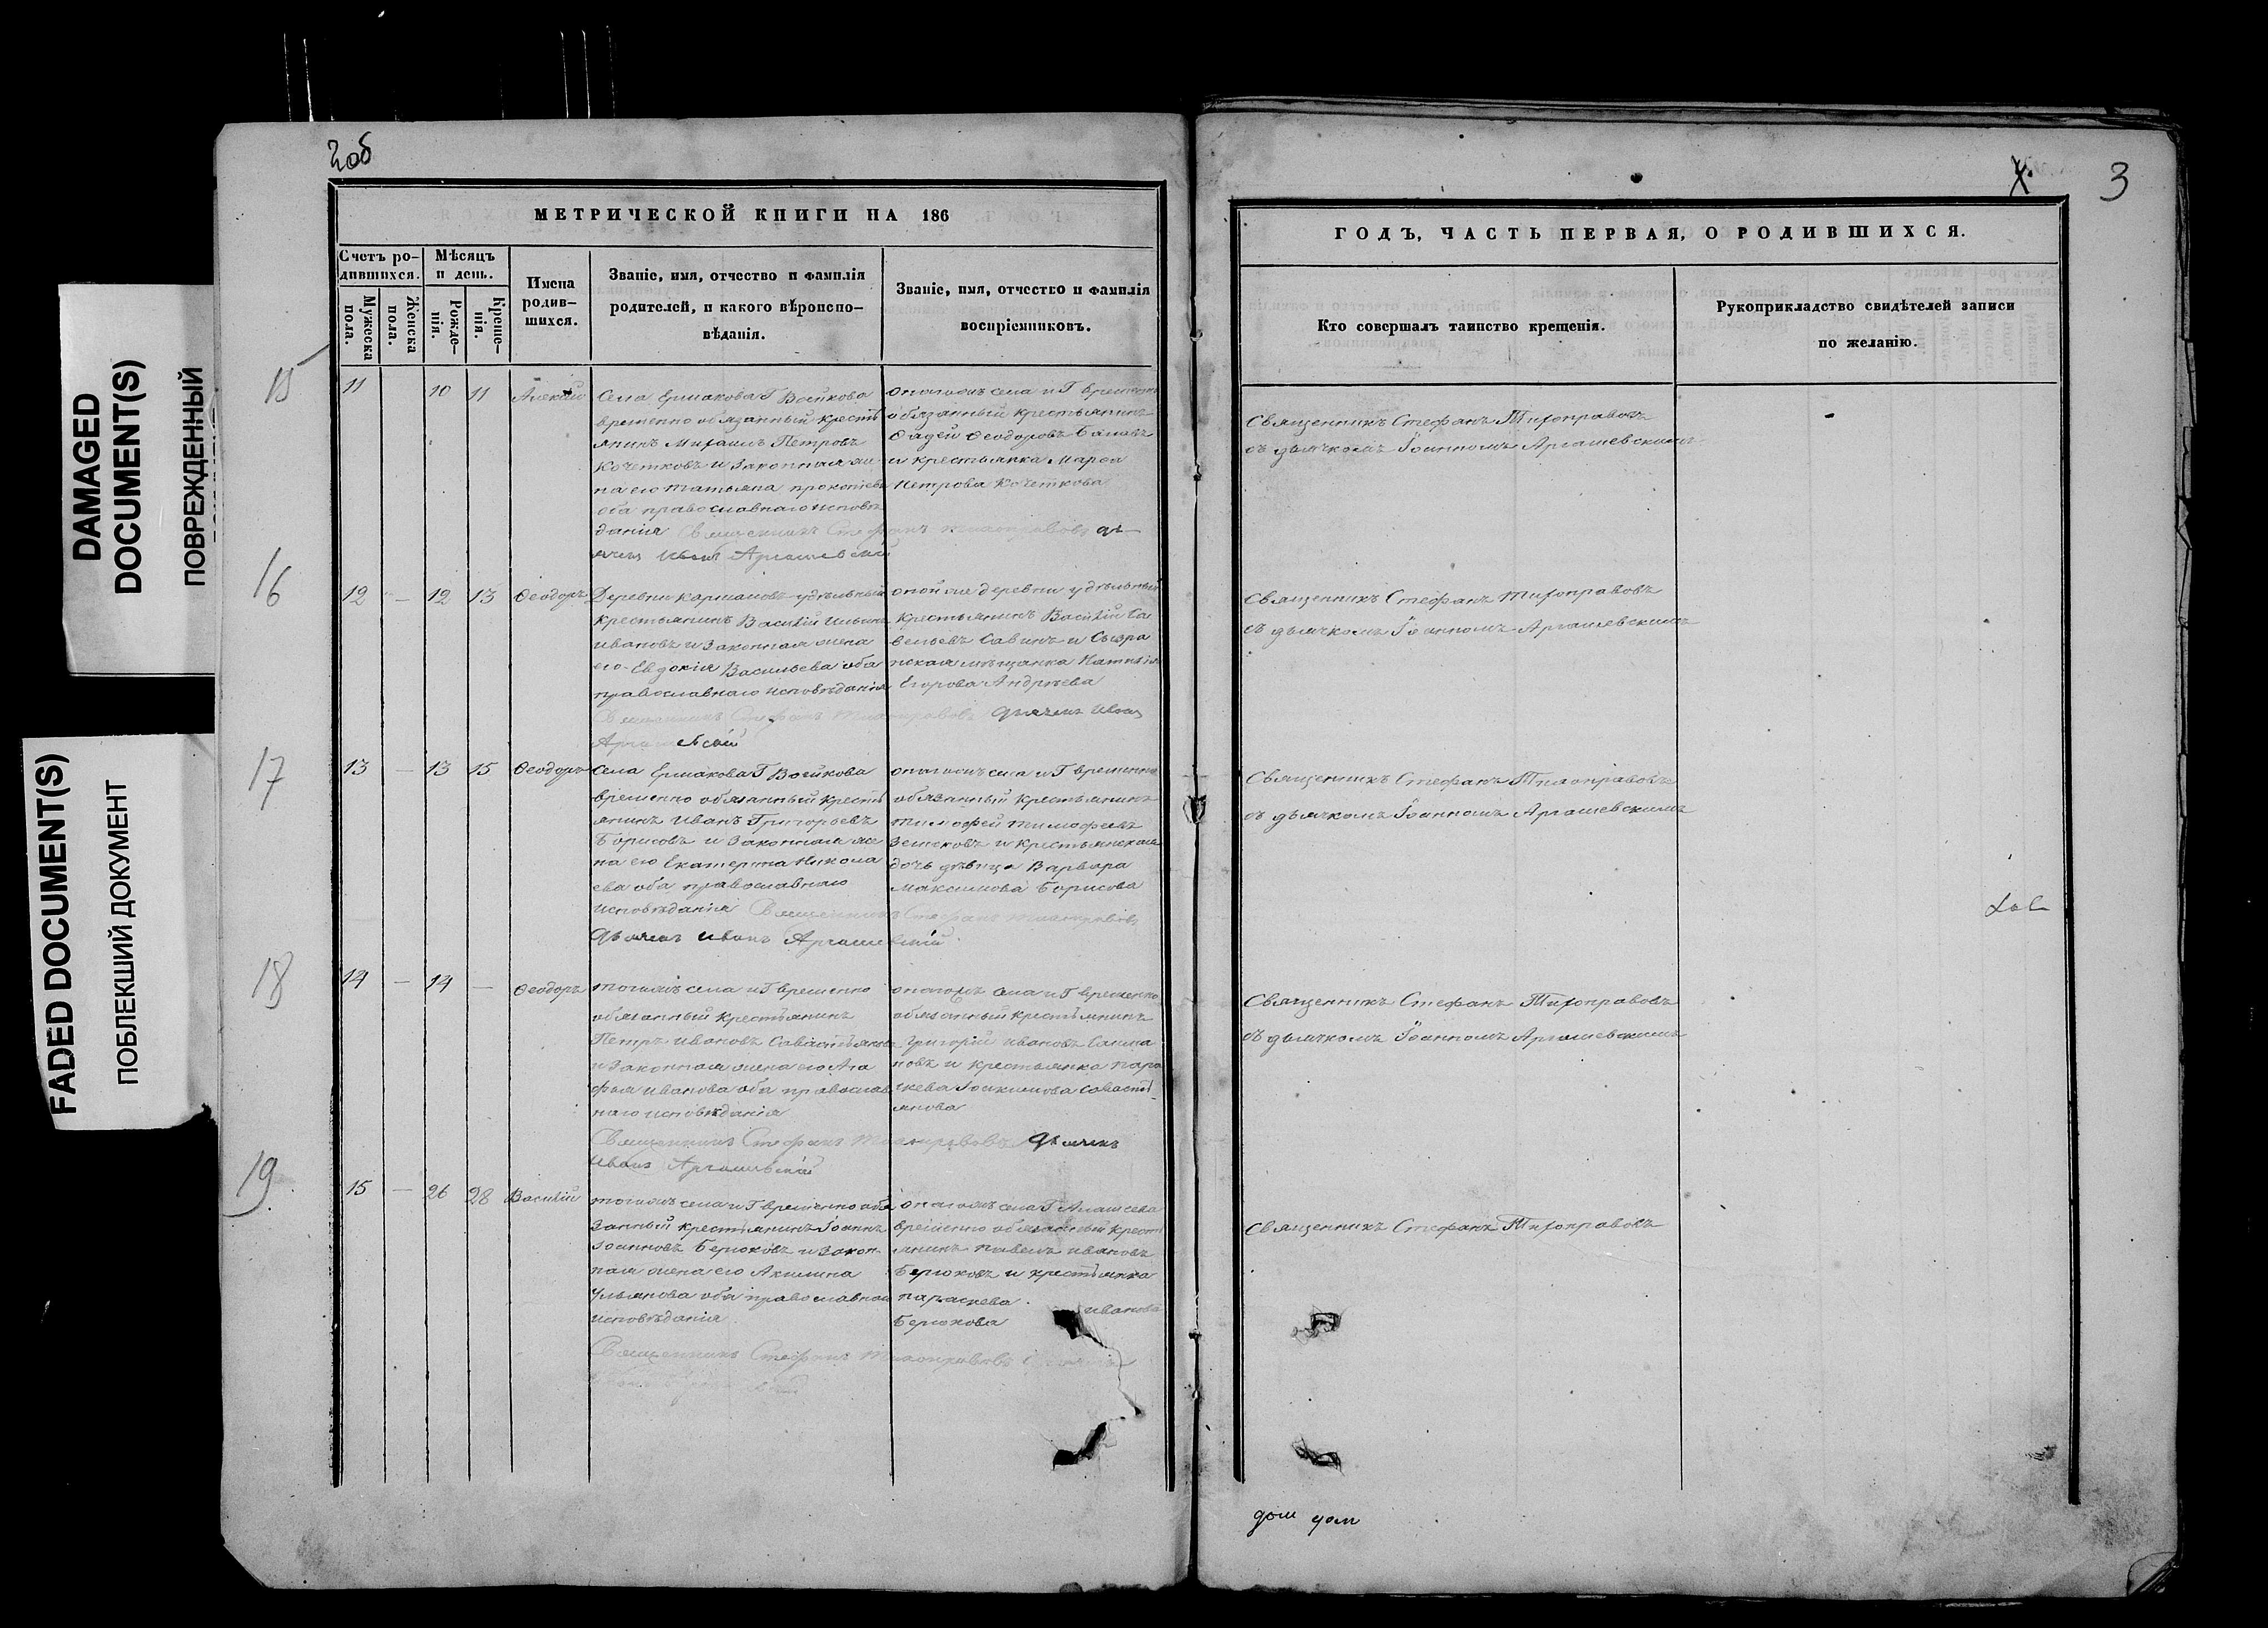 DAMAGED
DOCUMENT(S)
ПОВРЕЖДЕННЫЙ
FADED DOCUMENT(S)
ПОБЛЕКШИЙ ДОКУМЕНТ
2об
МЕТРИЧЕСКОЙ КНИГИ НА 186
Счетъ ро-
дившихся.
Мужеска
пола.
Женска
пола.
Мѣсяцъ
и день.
Рожде-
нія.
Креще-
нія.
Имена
родив-
шихся.
Званіе, имя, отчество и фамилія
родителей, и какого вѣроиспо-
вѣданія.
Званіе, имя, отчество и фамилія
воспріемниковъ.
15
11 10 11 Алексій
Села Ермакова Г Воейкова
временно обязанный кресть
янинъ Михаилъ Петровъ
Кочетковъ и законная же
на его Татьяна Прокопіева
оба православнаго исповѣ
данія Священникъ Стефанъ Тихоправовъ дь
ячекъ Иванъ Аргашевскій
Онагожъ села и Г временно
обязанный крестьянинъ
Фадей Феодоровъ
и крестьянка Марфа
Петрова Кочеткова
16
12 — 12 13 Феодоръ
Деревни Кармановъ удѣльный
крестьянинъ Василій Ильинъ
Ивановъ и законная жена
его Евдокія Васильева оба
православнаго исповѣданія
Священникъ Стефанъ Тихоправовъ дьячекъ Иванъ
Аргашевскій
оной же деревни удѣльный
крестьянинъ Василій Са
вельевъ Савинъ и Сызра
нская мѣщанка
Егорова Андрѣева
17
13 — 13 15 Феодоръ
Села Ермакова Г Воейкова
временно обязанный кресть
янинъ Иванъ Григорьевъ
Борисовъ и законная же
на его Екатерина Никола
ева оба православнаго
исповѣданія Священникъ Стефанъ Тихоправовъ
Дьячекъ Иванъ Аргашевскій
онагожъ села и Г временно
обязанный крестьянинъ
Тимофей Тимофеевъ
Земсковъ и крестьянская
дочь дѣвица Варвара
Максимова Борисова
18
14 — 14 — Феодоръ
тогожъ села и Г временно
обязанный крестьянинъ
Петръ Ивановъ Савастьяновъ
и законная жена его Ага
фья Иванова оба православ
наго исповѣданія
Священникъ Стефанъ Тихоправовъ Дьячекъ
Иванъ Аргашевскій
онагожъ села и Г временно
обязанный крестьянинъ
Григорій Ивановъ
новъ и крестьянка Пара
скева Іоакимова Савасть
янова
19
15 — 26 28 Василій
тогожъ села и Г временно обя
занный крестьянинъ Іоаннъ
Іоанновъ Берюковъ и закон
ная жена его Акилина
Ульянова оба православнаго
исповѣданія
Священникъ Стефанъ Тихоправовъ
онагожъ села Г
временно обязанный кресть
янинъ Павелъ Ивановъ
Берюковъ и крестьянка
Параскева Иванова
Берюкова
3
ГОДЪ, ЧАСТЬ ПЕРВАЯ, О РОДИВШИХСЯ.
Кто совершалъ таинство крещенія.
Рукоприкладство свидѣтелей записи
по желанію.
Священникъ Стефанъ Тихоправовъ
съ дьячкомъ Іоанномъ Аргашевскимъ
Священникъ Стефанъ Тихоправовъ
съ дьячкомъ Іоанномъ Аргашевскимъ
Священникъ Стефанъ Тихоправовъ
съ дьячкомъ Іоанномъ Аргашевскимъ
Священникъ Стефанъ Тихоправовъ
съ дьячкомъ Іоанномъ Аргашевскимъ
Священникъ Стефанъ Тихоправовъ